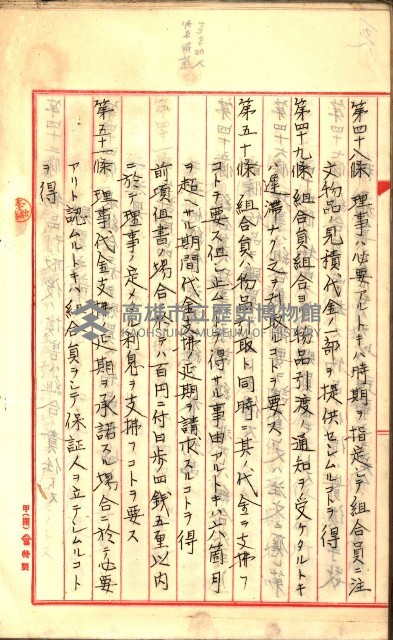 第四十八條 理事ハ必要アルトキハ時期ヲ指定シテ組合員ニ注
文物品見積代金ノ一部ヲ提供セシムルコトヲ得
第四十九條 組合員組合ヨリ物品引渡ノ通知ヲ受ケタルトキ
ハ遅滞ナク之ヲ引取ルコトヲ要ス
第五十條 組合員ハ物品引取ト同時ニ其ノ代金ヲ支拂フ
コトヲ要ス但シ止ムヲ得サル事由アルトキハ六箇月
ヲ超ヘサル期間代金支拂ノ延期ヲ請求スルコトヲ得
前項但書ノ場合ニ於テハ百円ニ付日歩四銭五厘以内
ニ於テ理事ノ定メタル利息ヲ支拂フコトヲ要ス
第五十一條 理事代金支拂延期ヲ承諾スル場合ニ於テ必要
アリト認ムルトキハ組合員ヲシテ保証人ヲ立テシムルコト
ヲ得
甲(南)會特製
高雄市立歷史博物館
KAOHSIUNG MUSEUM OF HISTORY